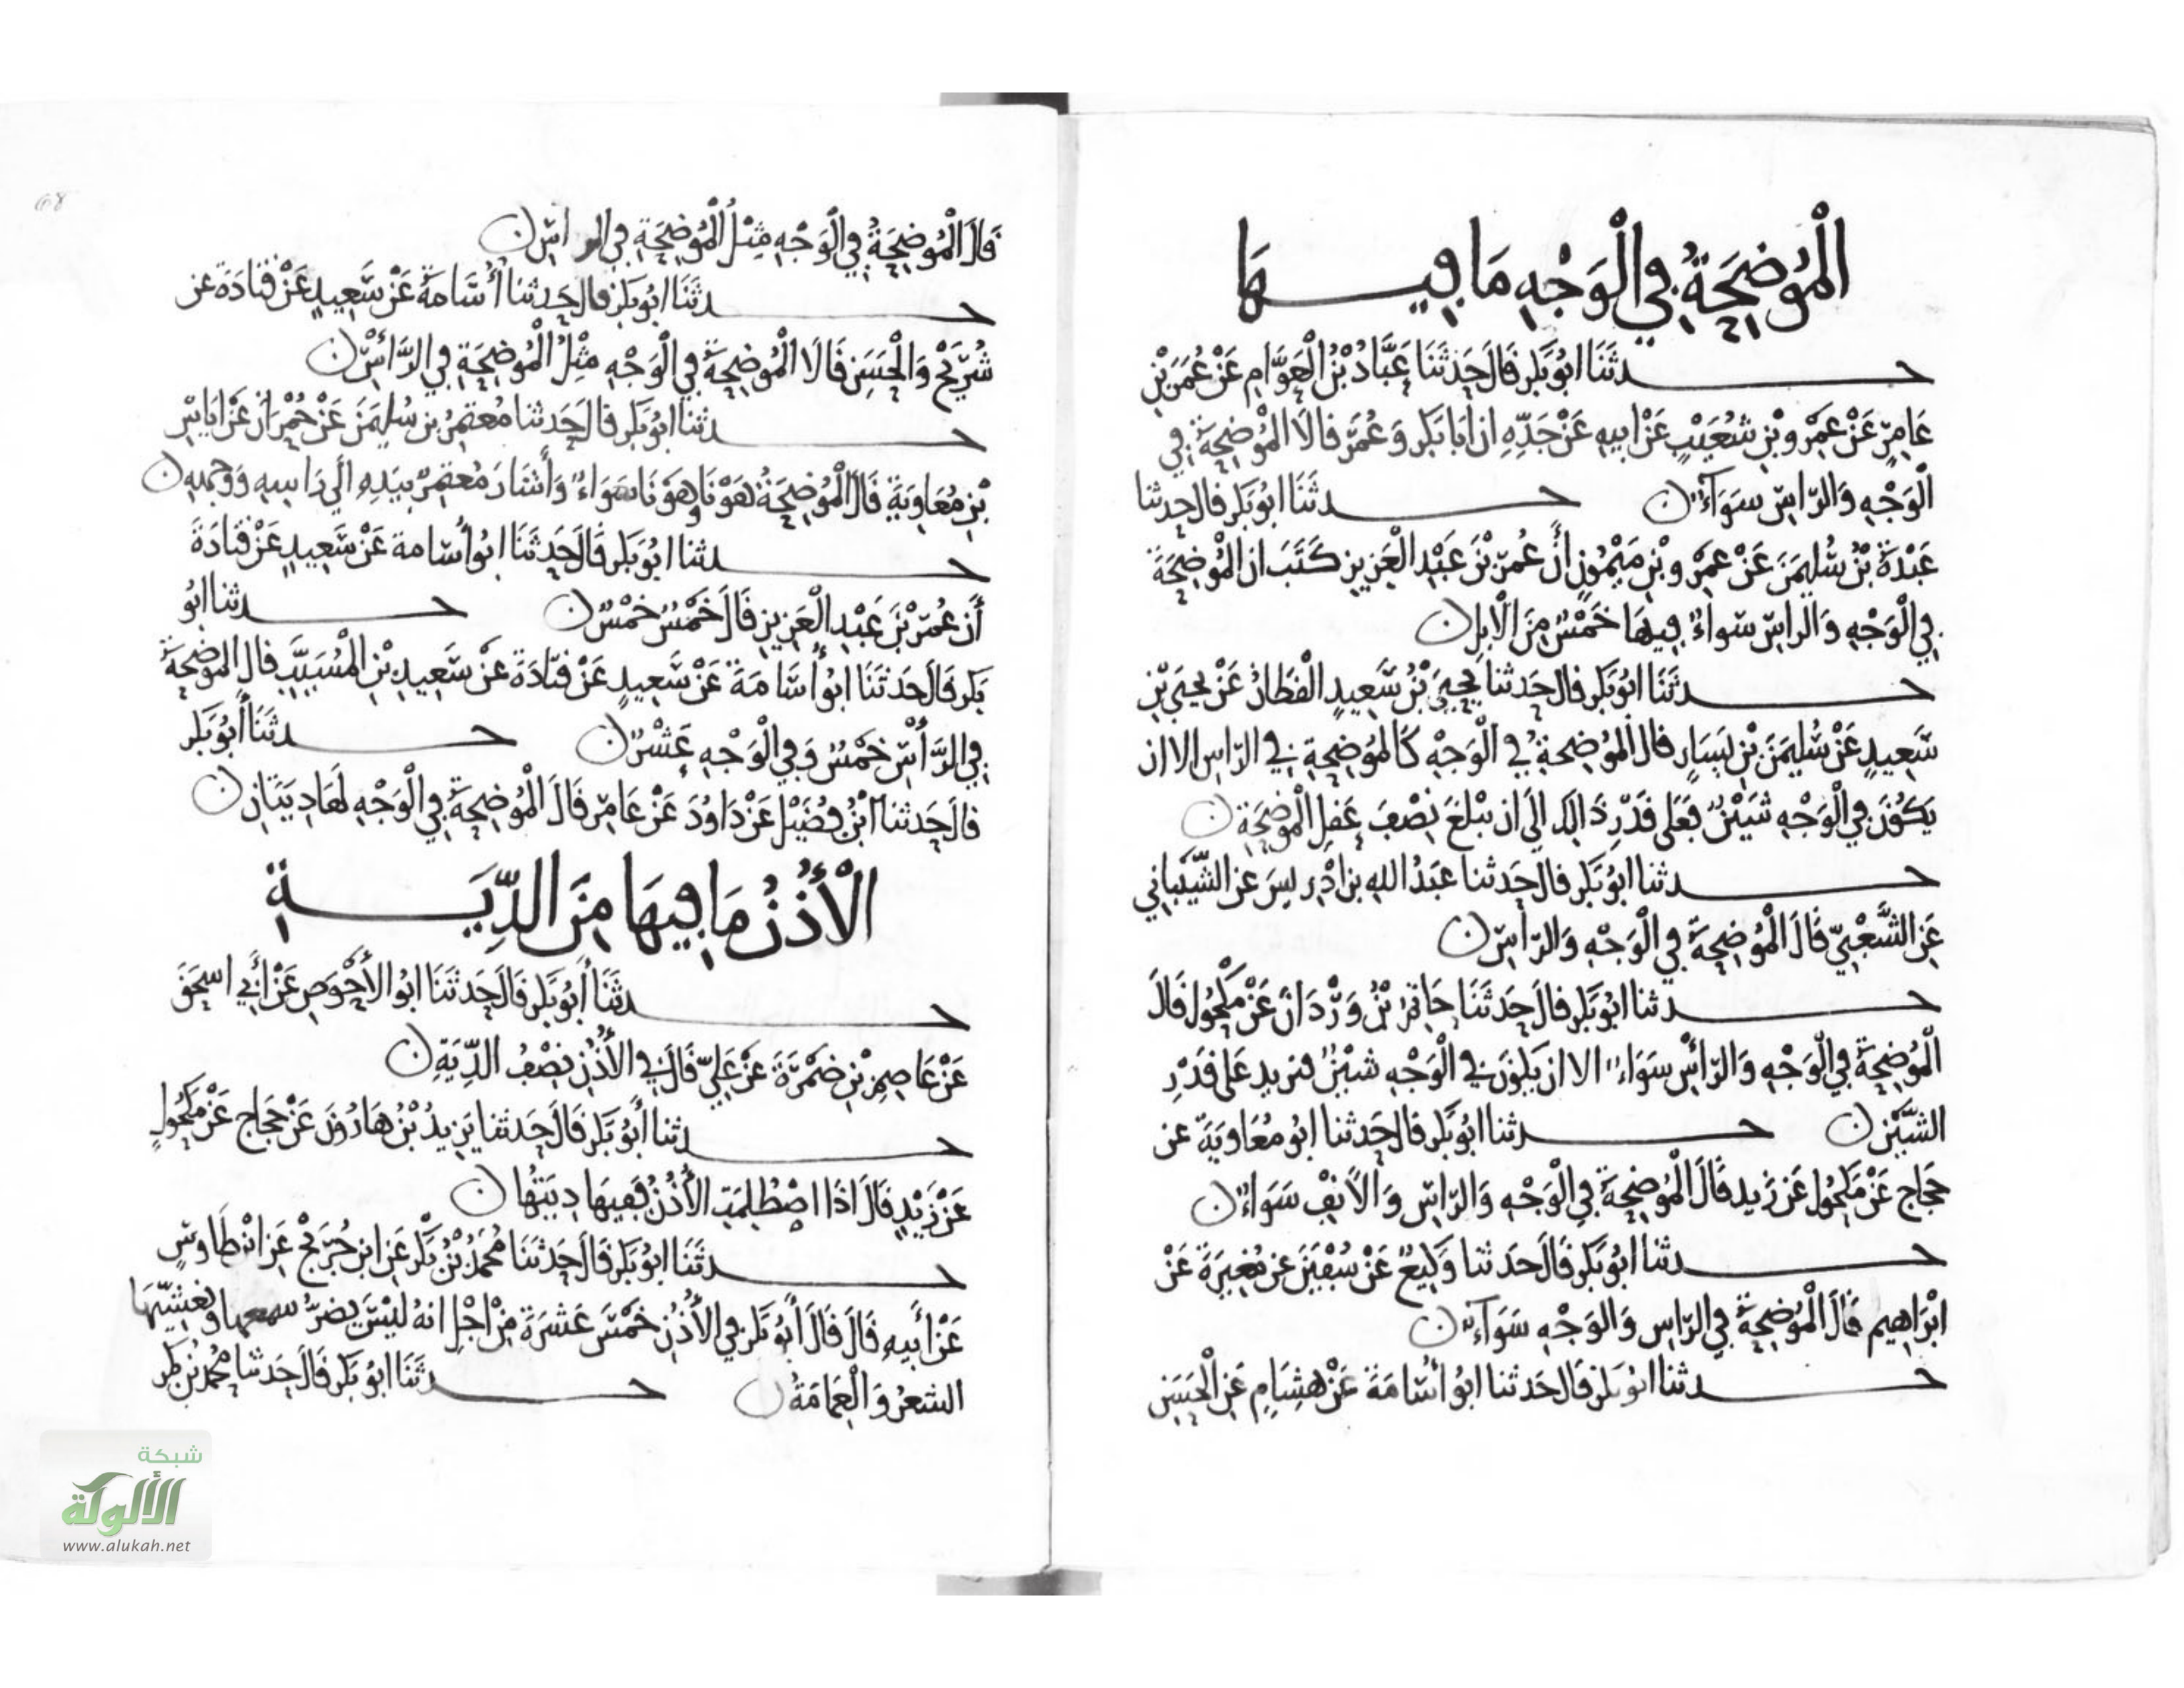 الْمُوضِحَةُ فِي الْوَجْهِ مَا فِيهَا
حدثَنَا ابُو بَكر قَالَ حَدثَنَا عَبَّادُ بْنُ الْعَوَّامِ عَنْ عُمَرَ بْنِ
عَامِرٍ عَنْ عَمْرِو بْنِ شُعَيْبٍ عَنْ ابِيهِ عَنْ جَدِّهِ ان ابَا بَكر وَعُمَرَ قالَا الْمُوْضِحَةُ فِي
الْوَجْهِ وَالرَّاسِ سَوَآءٌ حدثَنَا ابُو بَكر قال حدثنا
عَبْدَةُ بْنُ سُلَيمَنَ عَنْ عَمْرِو بْنِ مَيْمُونٍ أَنَّ عُمَرَ بْنَ عَبْدِ الْعَزِيزِ كَتَبَ ان الْمُوْضِحَةَ
فِي الْوَجْهِ وَالراسِ سَواءٌ فِيهَا خَمْسٌ مِنَ الْابِلِ
حدثَنَا ابُو بَكر قال حَدثنا يَحْيَى بْنُ سَعِيدٍ الْقَطانُ عَنْ يحيَى بْنِ
سَعِيدٍ عَنْ سُلَيمَنَ بْنِ يَسَارٍ قال الْمُوْضِحَةُ فِي الْوَجْهِ كَالمُوَضِحَةِ فِي الرّاسِ الا ان
يَكُوْنَ فِي الْوَجْهِ شَيْنٌ فَعَلَى قَدْرِ ذَالِكَ الَى ان يَبْلغَ نِصْفَ عَقلِ الْمُوضِحَةِ
حدثنا ابُو بَكر قال حَدثنا عَبْدُ اللهِ بن ادْرِيسَ عن الشَّيْبَانِي
عَنِ الشَّعْبِيِّ قَالَ الْمُوْضِحَةُ فِي الْوَجْهِ وَالرّاسِ
حدثنا ابُو بَكر قال حَدثَنَا حَاتِمُ بْنُ وَرْدَانَ عَنْ مَكْحُولٍ قَالَ
الْمُوْضِحَةُ فِي الْوَجْهِ وَالرّأسِ سَوَاءٌ الا ان يَكُونَ فِي الْوَجْهِ شَيْنٌ فتزيد عَلى قَدْرِ
الشَّيْنِ حدثنا ابُو بَكر قال حَدثنا ابُو مُعَاوِيَةَ عن
حَجَاجٍ عَنْ مَكْحُولٍ عَن زَيد قَالَ الْمُوْضِحَةُ فِي الْوَجْهِ وَالرّاسِ وَالْانْفِ سَوَاءٌ
حدثنا ابُو بَكر قَالَ حَدثنا وَكِيعٌ عَنْ سُفْيَنَ عن مُغِيرَةَ عَنْ
ابْرَاهِيم قَالَ الْمُوْضِحَةُ فِي الرّاسِ وَالْوَجْهِ سَوَآءٌ
حدثنا ابُو بَكر قَالَ حَدثنا ابُو أسَامَةَ عَنْ هِشَامٍ عَنِ الْحَسَنِ
قَالَ الْمُوْضِحَةُ فِي الْوَجْهِ مِثْلُ الْمُوْضِحَةِ فِي الراسِ
حدثَنَا ابُو بَكر قال حَدثنا أُسَامَةُ عَنْ سَعِيدٍ عَنْ قَتَادَةَ عن
شُرَيْحٍ وَالْحَسَنِ قَالَا الْمُوْضِحَةُ فِي الْوَجْهِ مِثْلُ الْمُوْضِحَةِ فِي الرَّأسِ
حدثنا ابُو بَكر قال حَدثنا مُعتمِرُ بن سُلَيمَنَ عَنْ حُمْرَانَ عَنْ ايَاسِ
بْنِ مُعَاوِيَةَ قَالَ الْمُوْضِحَةُ هَوْنَا وَهَوْنَا سَوَاءٌ وَأشَارَ مُعْتَمِرٌ بِيَدِهِ الَى رَاسِهِ وَوَجْهِهِ
حدثنا ابُو بَكر قَالَ حَدثَنَا ابُو أُسَامة عَنْ سَعِيدٍ عَنْ قَتَادَةَ
أَنَّ عُمَرَ بْنَ عَبْدِ الْعَزِيزِ قَالَ خَمْسٌ خَمْسٌ حدثنا ابُو
بَكر قَالَ حَدثَنَا ابُو أُسَامَةَ عَنْ سَعِيدٍ عَنْ قَتَادَةَ عَنْ سَعِيدِ بْنِ الْمُسَيَّبِ قال الموضحَةُ
فِي الرَّأْسِ خَمْسٌ وَفِي الْوَجْهِ عَشْرٌ حدثَنَا أَبُو بَكر
قال حَدثنا ابْنُ فُضَيْلٍ عَنْ دَاوُدَ عَنْ عَامِرٍ قَالَ الْمُوْضِحَةُ فِي الْوَجْهِ لَهَا دِيَتَانِ
الْأُذُنُ مَا فِيهَا مِنَ الدِّيَةِ
حدثَنَا أَبُو بَكر قَالَ حَدثَنَا ابُو الأَحْوَصِ عَنْ أَبِي اسحَقَ
عَنْ عَاصِمِ بْنِ ضَمْرَةَ عَنْ عَلِيٍّ قَالَ فِي الأُذُنِ نِصْفُ الدِّيَةِ
حدثنا أَبُو بَكر قَالَ حَدثنا يَزِيدُ بْنُ هَارُونَ عَنْ حَجاجٍ عَنْ مَكْحُولٍ
عَنْ زَيْدٍ قَالَ اذَا اصْطُلِمَتِ الأُذُنُ فَفِيهَا دِيَتُهَا
حدثَنَا ابُو بَكر قَالَ حَدثَنَا مُحَمَدُ بْنُ بَكْرٍ عَنِ ابنِ جُرَيْجٍ عَنِ ابْنِ طَاوسٍ
عَنْ أَبِيهِ قَالَ قَالَ أَبُو بَكر فِي الأُذُنِ خَمْسَ عَشرَةَ مِنْ اجْلِ انهُ لَيْسَ يَضرُّ سمعها ويُغَشِّيهَا
الشعرُ وَالْعِمَامَةُ حدثَنَا ابُو بَكر قَالَ حَدثنا محمدُ بْنُ بكر
68
شبكة
الألوكة
www.alukah.net